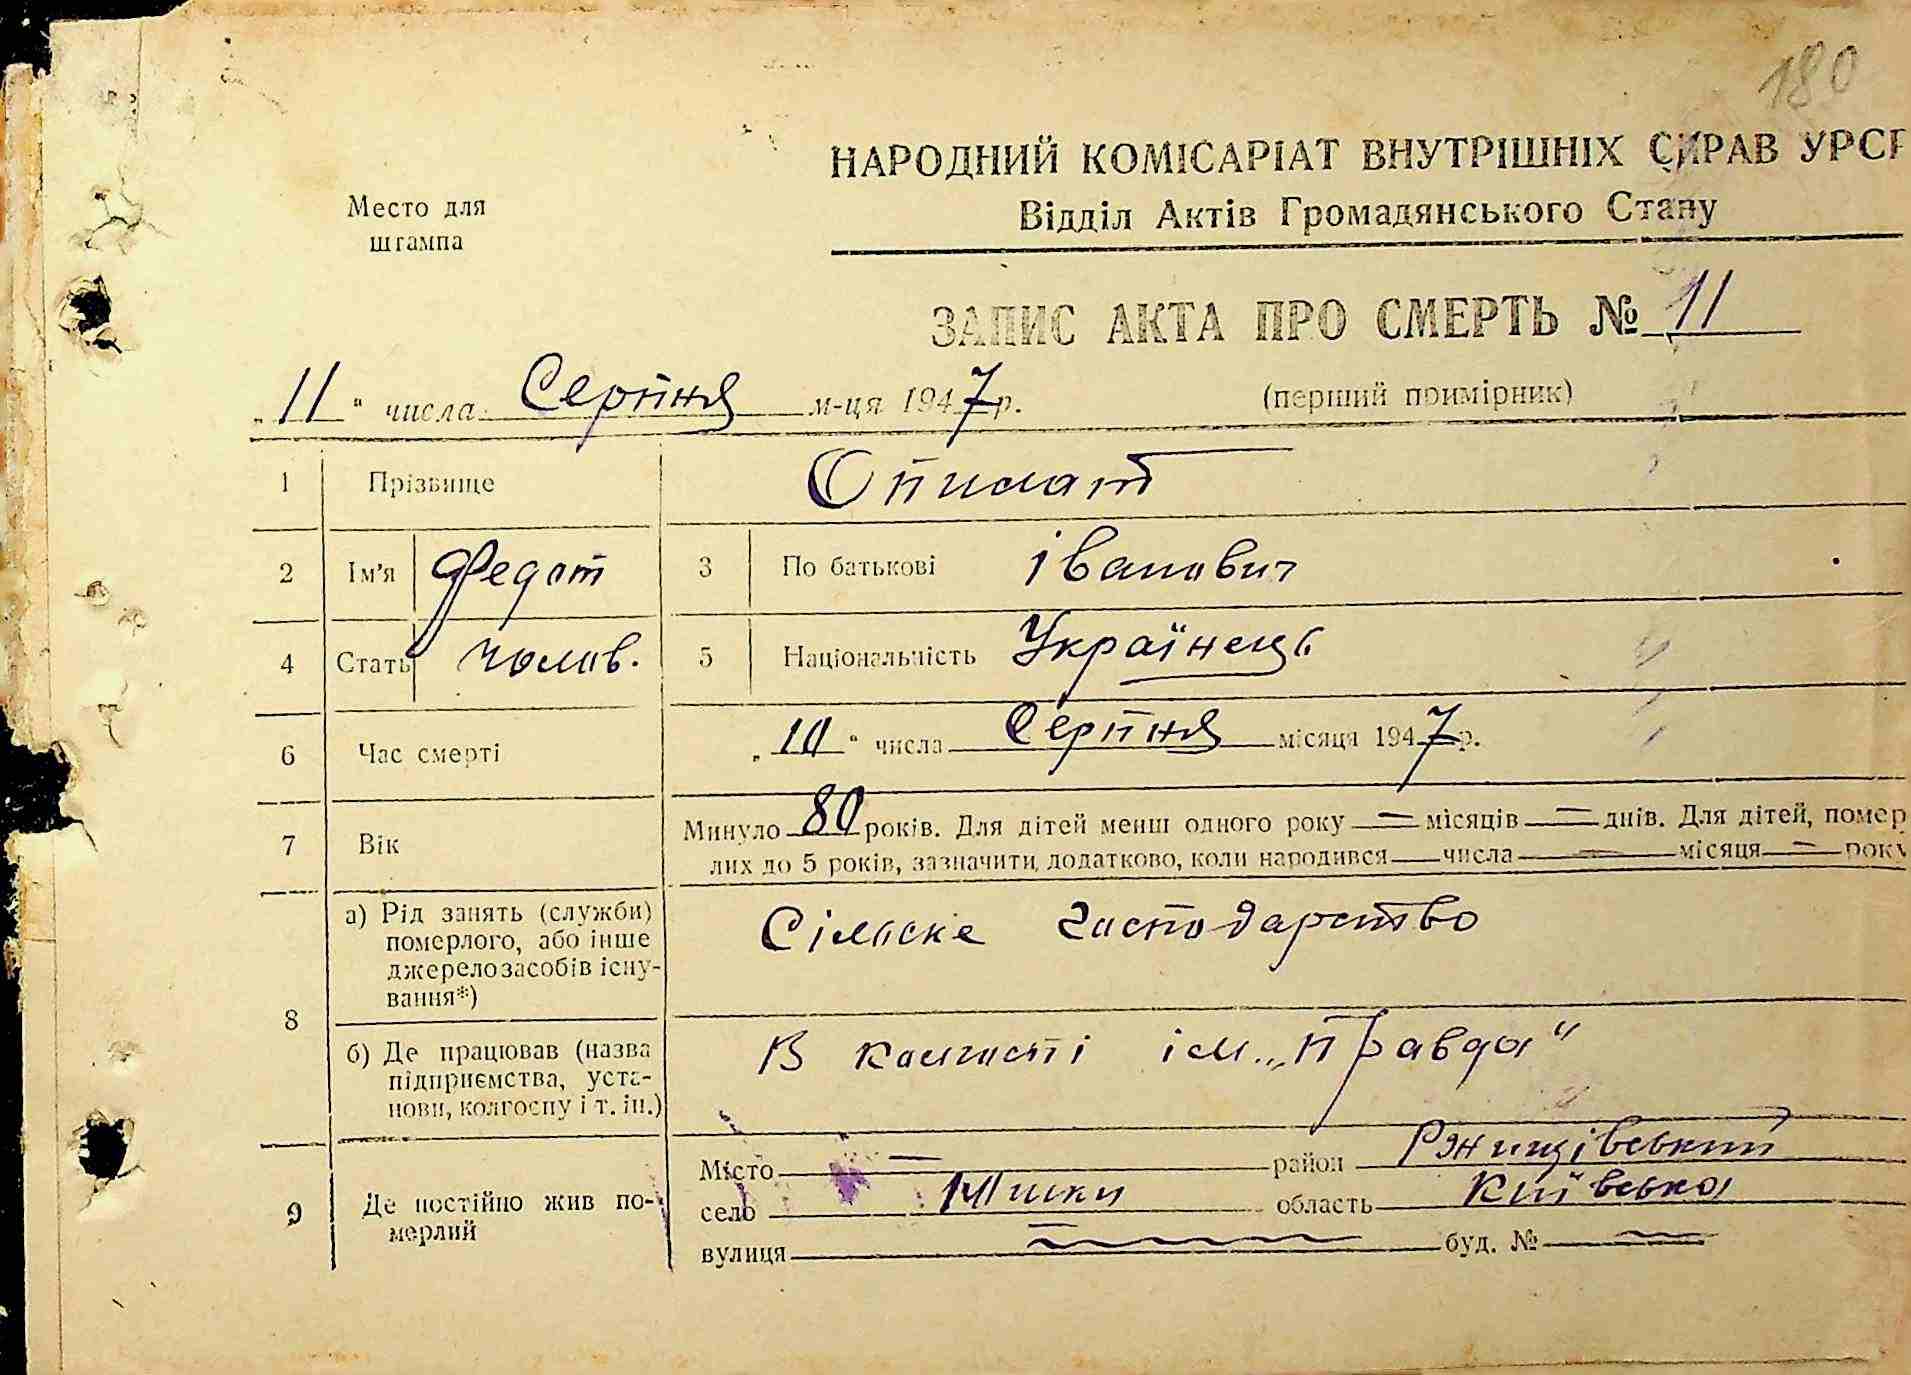 180
НАРОДНИЙ КОМІСАРІАТ ВНУТРІШНІХ СПРАВ УРСР
Відділ Актів Громадянського Стану
Место для
штампа
ЗАПИС АКТА ПРО СМЕРТЬ № 11
„11“ числа Серпня м-ця 1947 р. (перший примірник)
1 Прізвище
2 Ім'я Федот 3 По батькові Іванович
4 Стать чолов. 5 Національність Українець
6 Час смерті „10“ числа Серпня місяця 1947 р.
7 Вік Минуло 80 років. Для дітей менш одного року — місяців — днів. Для дітей, помер
лих до 5 років, зазначити додатково, коли народився — числа — місяця — року
8 а) Рід занять (служби) померлого, або інше джерело засобів існування*) Сільське господарство
б) Де працював (назва підприємства, установи, колгоспу і т. ін.) В колгоспі ім. „Правда“
9 Де постійно жив померлий
Місто — район Ржищівський
село область Київська
вулиця — буд. № —